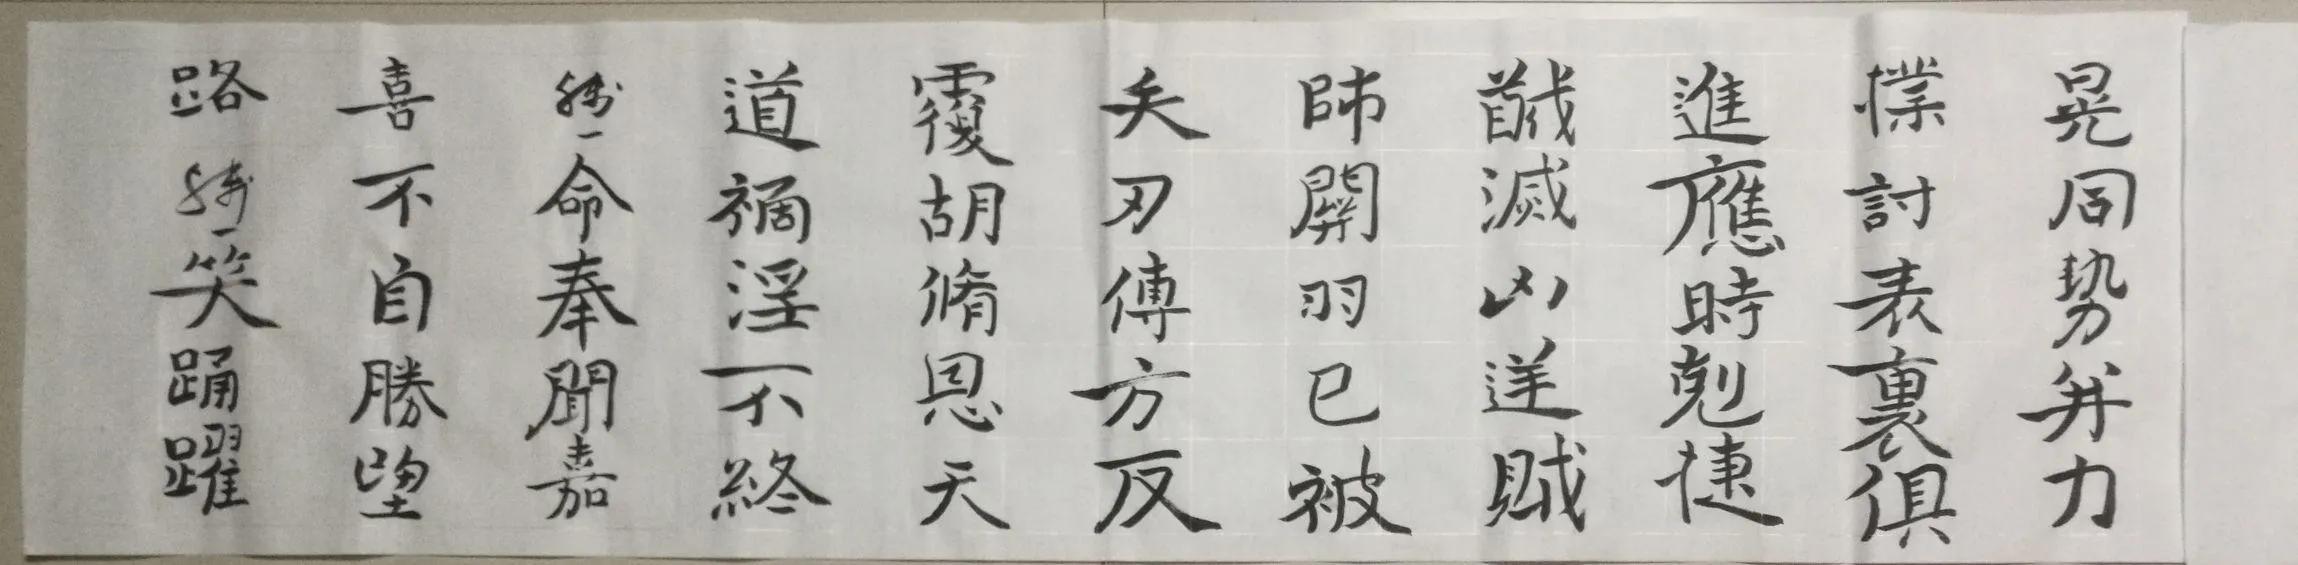 晃同勢并力
撲討表裏俱
進應時剋捷
馘滅凶逆賊
帥關羽已被
矢刃傅方反
覆胡脩恩天
道禍淫不終
命奉聞嘉
喜不自勝望
路笑踊躍